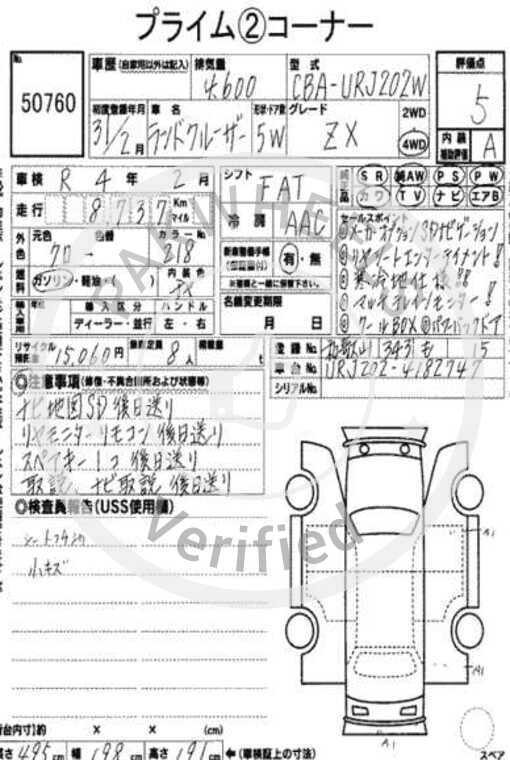 プライム②コーナー
No.
50760
車歴(自家用以外は記入)
排気量
4600
型式
CBA-URJ202W
評価点
5
初度登録年月
31/2月
車名
ランドクルーザー
形状・ドア数
5W
グレード
ZX
2WD
4WD
内装
補助評価
A
車検 R 4年 2月
シフト
FAT
純正品
SR 純AW PS PW
カワ TV ナビ エアB
走行 8737 Km マイル
冷房
AAC
セールスポイント
①メーカーオプションSDナビゲーション
②リヤシートエンターテイメント!
③寒冷地仕様!!
④マルチテレインモニター!
⑤クールBOX ⑥パワーバックドア
外色
元色 色替 カラーNo.
クロ→ 218
新車整備手帳
(保証書付)
有・無
※書類と一緒に保管下さい。
燃料
ガソリン・軽油・( )
内装色
名義変更期限
月 日
輸入車用
年式 輸入区分 ハンドル
ディーラー・並行 左・右
リサイクル
預託金
15,060円
乗車定員
8人
積載量
t
登録No.
和歌山 343 も 15
車台No.
URJ202-4182747
シリアルNo.
◎注意事項(修復・不具合箇所および状態等)
ナビ地図SD後日送り
リヤモニターリモコン後日送り
スペアキー1コ後日送り
取説、ナビ取説後日送り
◎検査員報告(USS使用欄)
小キズ
A1
A1
A1
スペア
荷台内寸]約 × × (cm)
長さ 495cm 幅 198cm 高さ 191cm ←(車検証上の寸法)
CARWHEEL
Verified